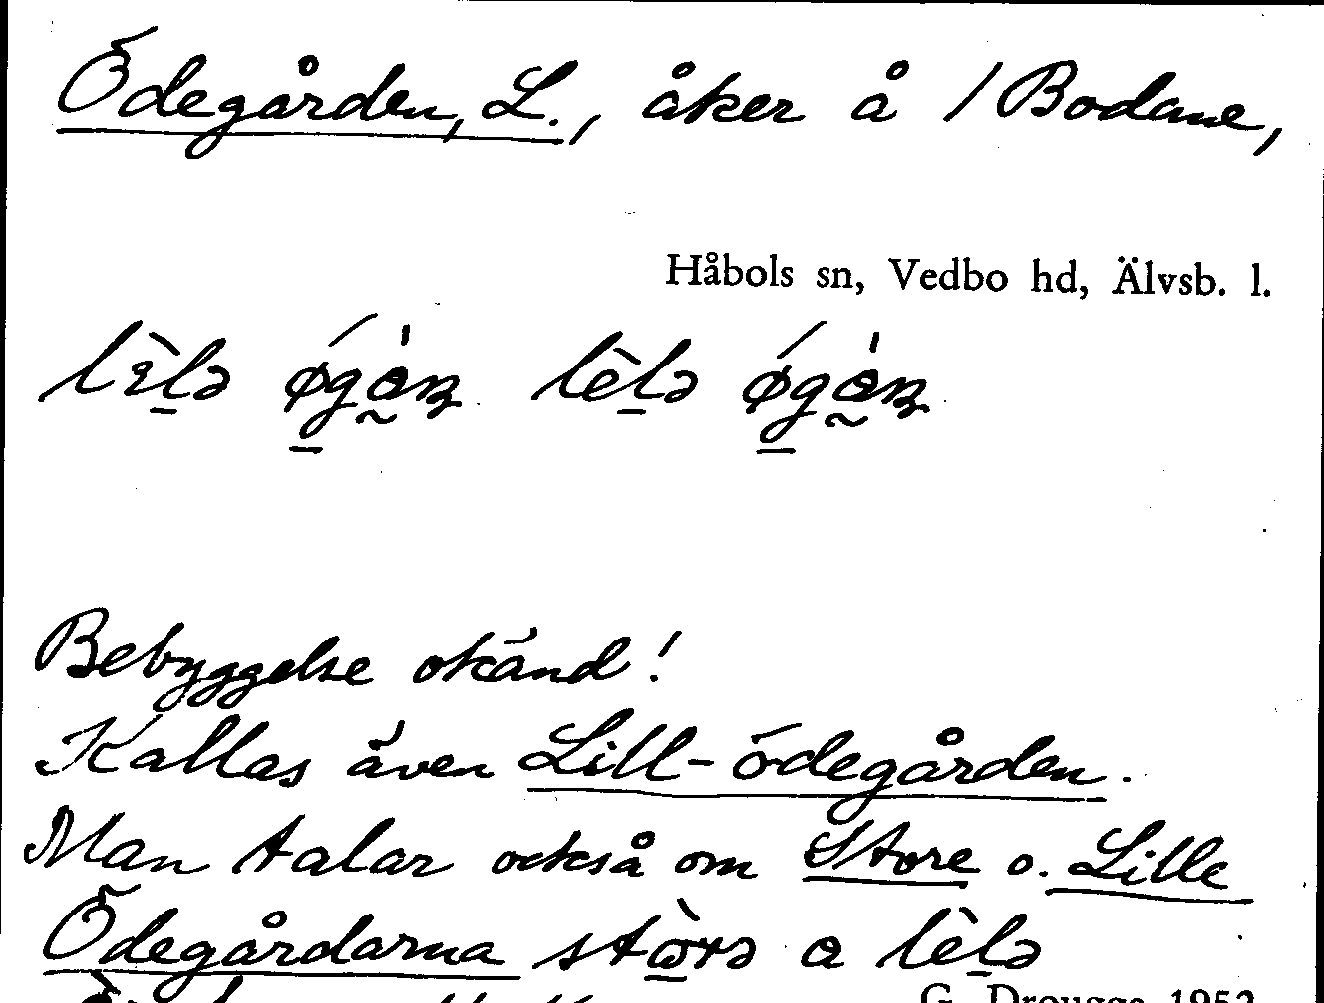 Ödegården, L., åker å 1 Bodane,
Håbols sn, Vedbo hd, Älvsb. l.
Bebyggelse okänd!
Kallas även Lill-ödegården.
Man talar också om Store o. Lille
Ödegårdarna
G. Drougge 1952